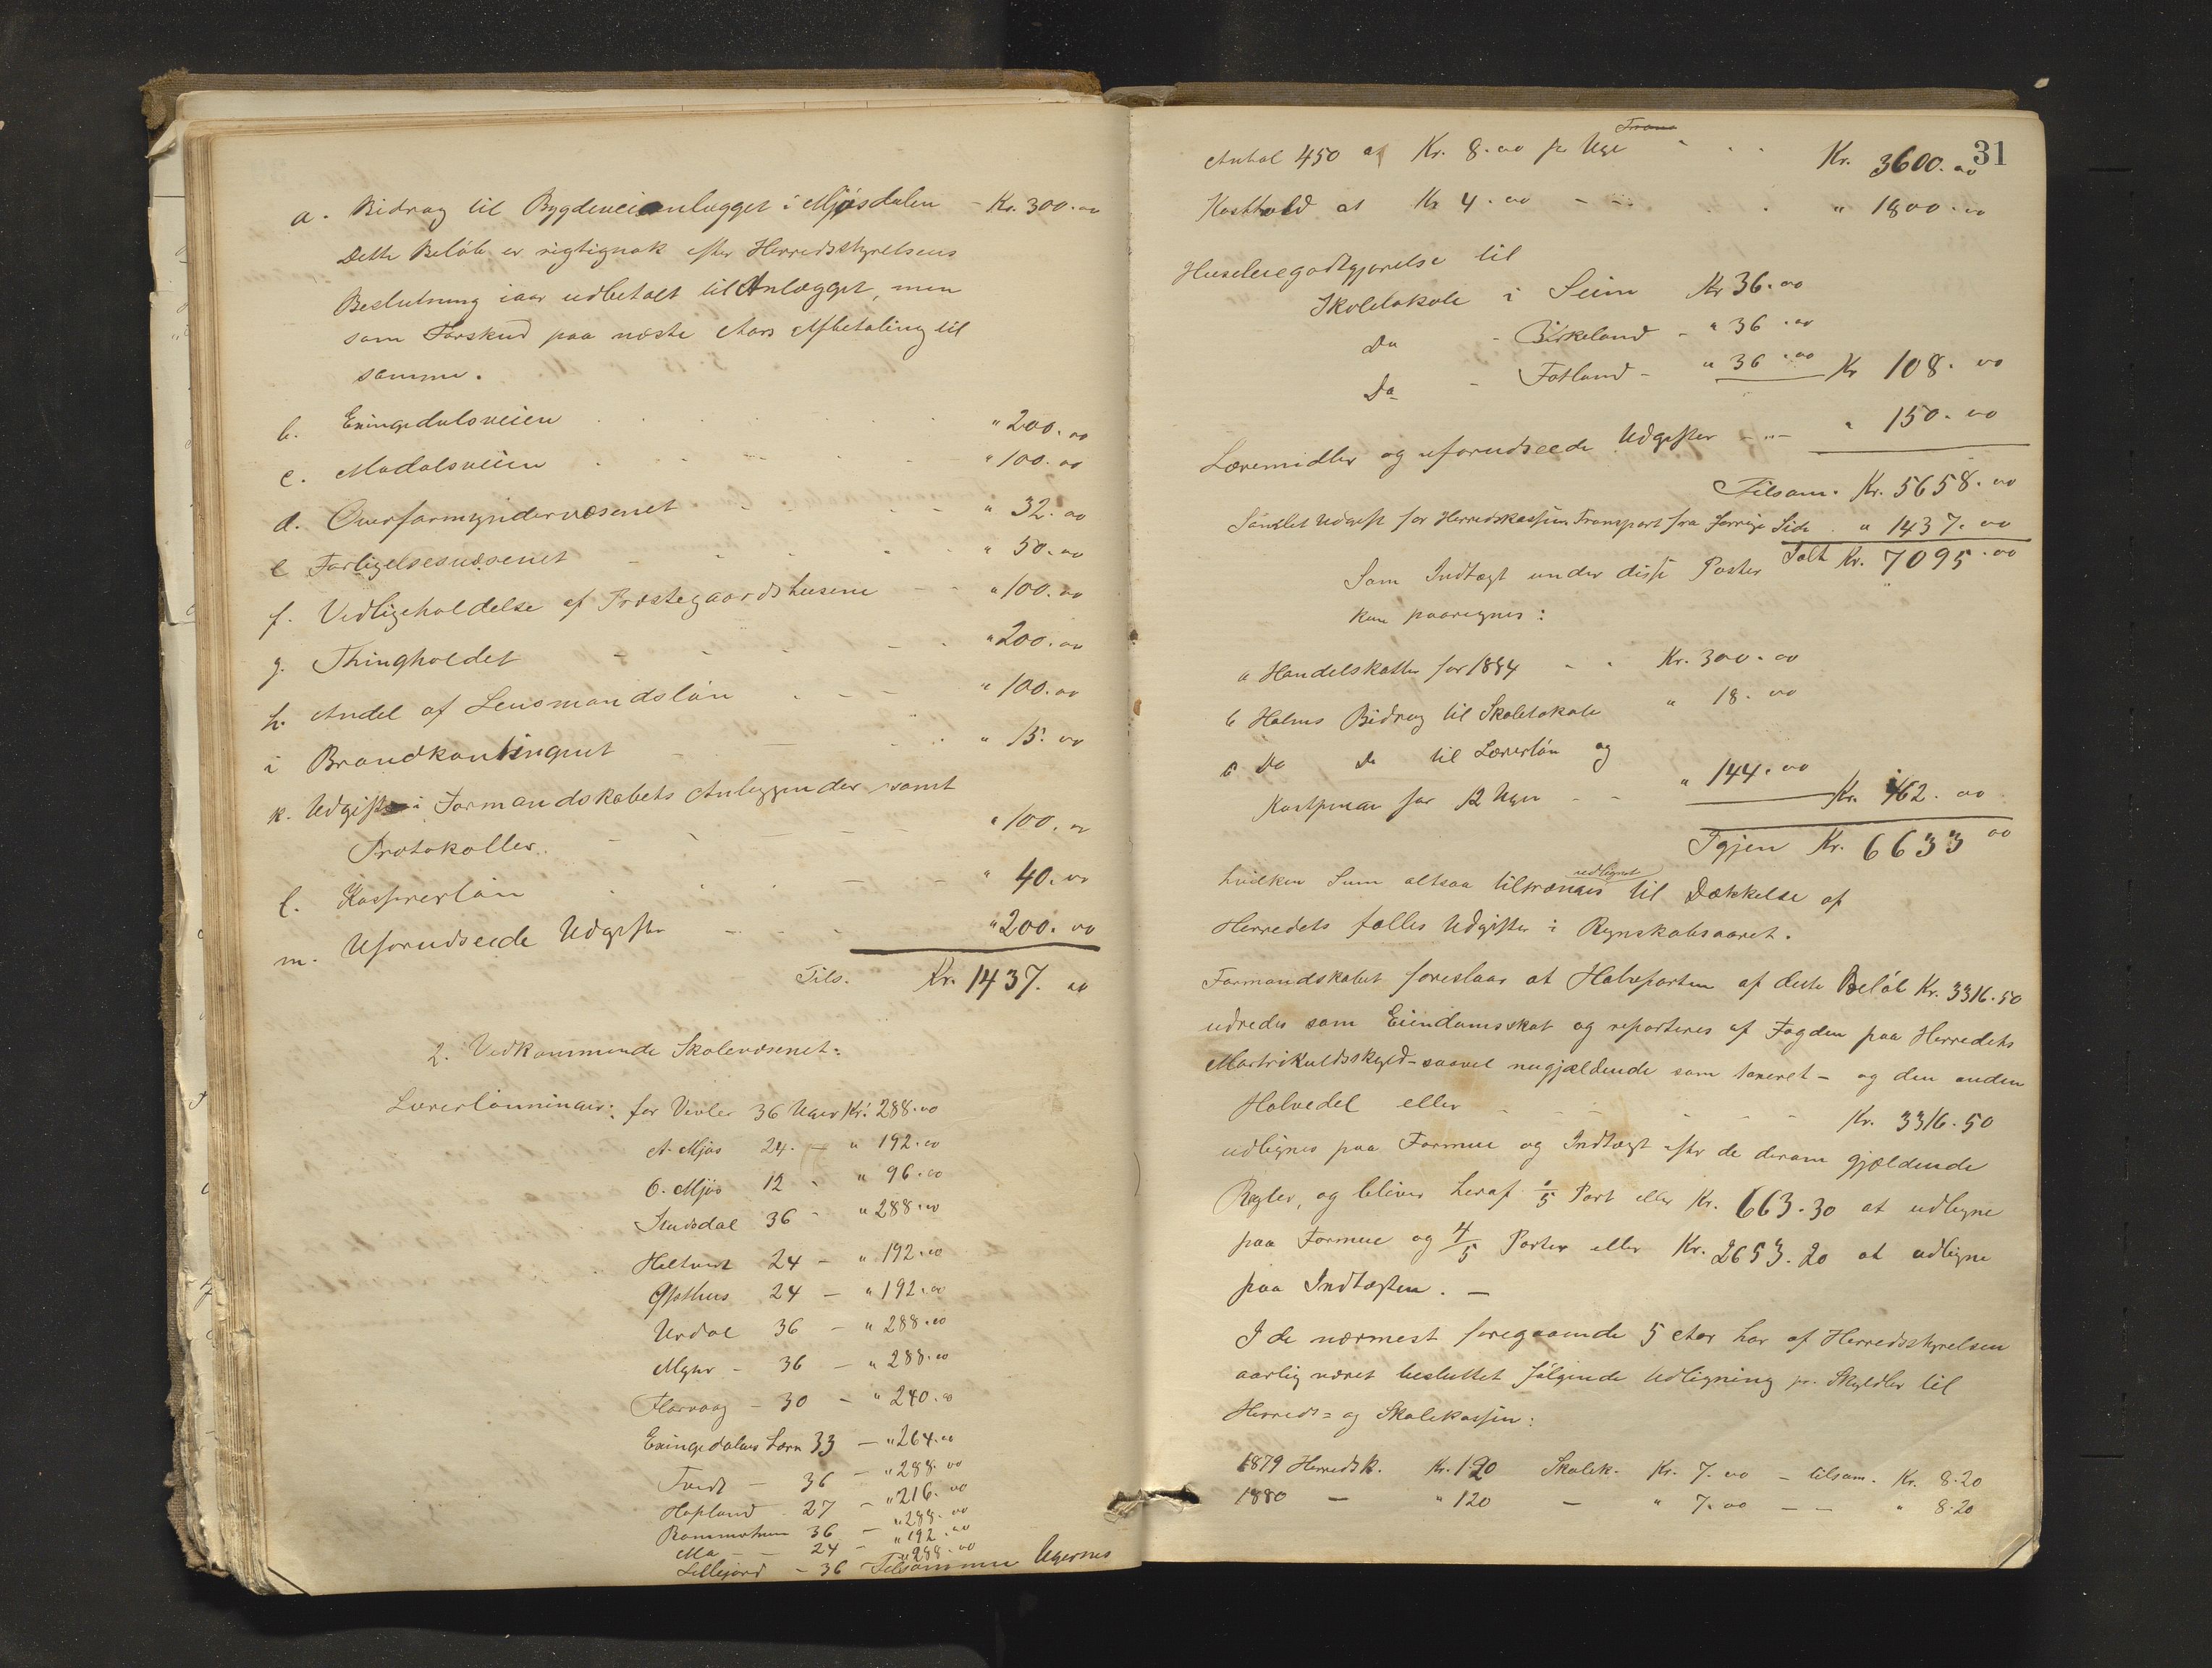 a. Bidrag til Bygdeveianlægget i Mjøsdalen - Kr. 300.00
Dette Beløb er rigtignok efter Herredsstyrelsens
Beslutning iaar udbetalt til Anlægget, men
som Forskud paa næste Aars Afbetaling til
samme.
b. Exingedalsveien " 200.00
c. Modalsveien " 100.00
d. Overformyndervæsenet " 32.00
e Forligelsesvæsenet " 50.00
f. Vedligeholdelse af Præstegaardshusene " 100.00
g. Thingholdet " 200.00
h. Andel af Lensmandsløn " 100.00
i Brandkontingent " 15.00
k. Udgifter i Formandskabets Anliggender samt
Protokoller. " 100.00
l. Kassererløn " 40.00
m. Uforudseede Udgifter " 200.00
Tils. Kr. 1437.00
2. Vedkommende Skolevæsenet:
Lærerlønninger: for Vevler 36 Uger Kr. 288.00
A. Mjøs 24. — " 192.00
O. Mjøs 12 - " 96.00
36 - " 288.00
Heltveit 24 - " 192.00
24 — " 192.00
Urdal 36 — " 288.00
Myhr - 36 — " 288.00
Flatvaag - 30 - " 240.00
Exingedalens Lærer 33 — " 264.00
Tveit — 36 — " 288.00
Hopland 27 — " 216.00
36 — " 288.00
Mo — 24 — " 192.00
Lillejord - 36 " 288.00 Tilsammen Ugernes
31
Trans
Antal 450 a Kr. 8.00 pr Uge Kr. 3600.00
Kosthold at Kr 4.00 " 1800.00
Husleiegodtgjørelse til
Skolelokale i Seim Kr 36.00
Do - Birkeland - " 36.00
Do - Fotland - " 36.00 Kr 108.00
Læremidler og uforudseede Udgifter - " - " 150.00
Tilsam. Kr. 5658.00
Samlet Udgift for Herredskassen Transport fra forrige Side " 1437.00
Som Indtægt under disse Poster Ialt Kr. 7095.00
kan paaregnes:
a Handelskatter for 1884 Kr. 300.00
b Holms Bidrag til Skolelokale " 18.00
c Do Do til Lærerløn og
Kostpenge for 12 Uger " 144.00 Kr. 462.00
Igjen Kr. 6633 00
udlignet
hvilken Sum altsaa tiltrænges til Dækkelse af
Herredets fælles Udgifter i Regnskabsaaret.
Formandskabet foreslaar at Halvparten af dette Beløb Kr. 3316.50
udredes som Eiendomsskat og reparteres af Fogden paa Herredets
Martrikulsskyld - saavel nugjældende som taxeret - og den anden
Halvedel eller Kr. 3316.50
udlignes paa Formue og Indtægt efter de derom gjældende
Regler, og bliver heraf 1/5 Part eller Kr. 663.30 at udligne
paa Formue og 4/5 Parter eller Kr. 2653.20 at udligne
paa Indtægten. —
I de nærmest foregaaende 5 Aar har af Herredsstyrelsen
aarlig været besluttet følgende Udligning pr. Skylddlr til
Herreds= og Skolekassen:
1879 Herredsk. Kr. 1.20 Skolek. Kr. 7.00 - tilsam. Kr. 8.20
1880 — " 120 — " 7.00 — — " 8.20